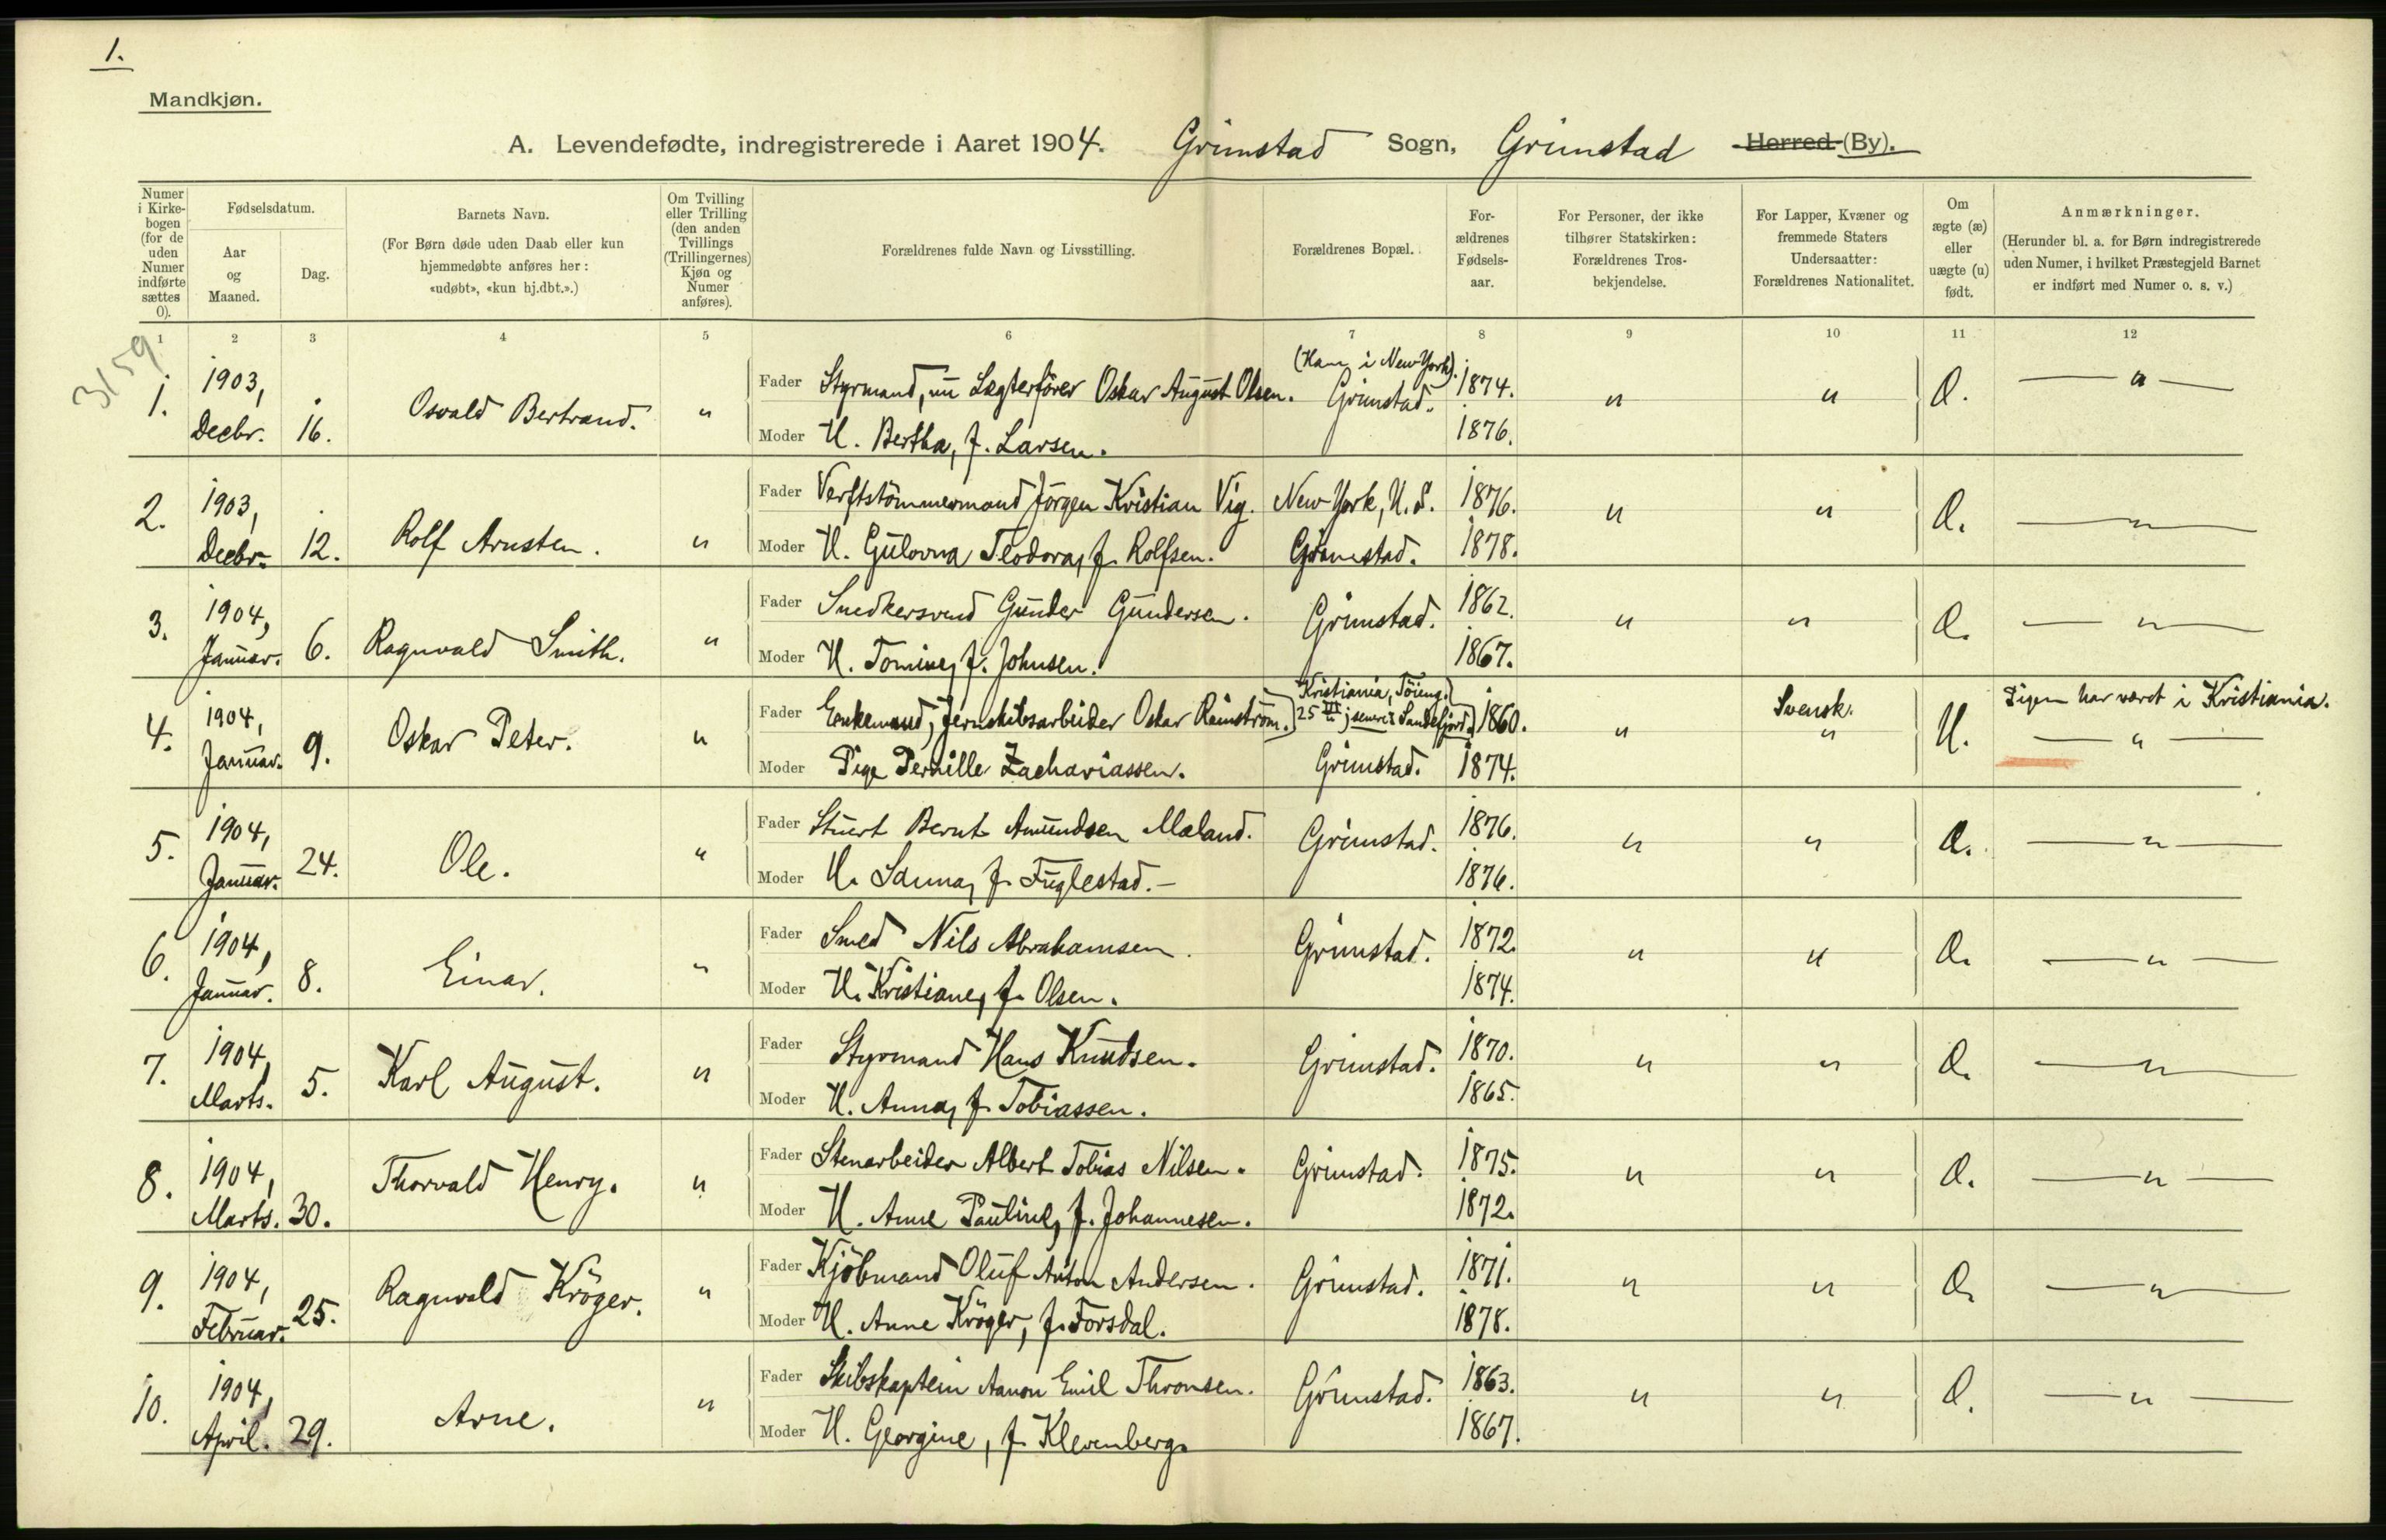 1.
Mandkjøn.
A. Levendefødte, indregistrerede i Aaret 1904. Grimstad Sogn, Grimstad Herred (By).
Numer i Kirkebogen (for de uden Numer indførte sættes 0).
Fødselsdatum.
Aar og Maaned.
Dag.
Barnets Navn.
(For Børn døde uden Daab eller kun hjemmedøbte anføres her: «udøbt», «kun hj.dbt.».)
Om Tvilling eller Trilling (den anden Tvillings (Trillingernes) Kjøn og Numer anføres).
Forældrenes fulde Navn og Livsstilling.
Forældrenes Bopæl.
Forældrenes Fødselsaar.
For Personer, der ikke tilhører Statskirken: Forældrenes Trosbekjendelse.
For Lapper, Kvæner og fremmede Staters Undersaatter: Forældrenes Nationalitet.
Om ægte (æ) eller uægte (u) født.
Anmærkninger.
(Herunder bl. a. for Børn indregistrerede uden Numer, i hvilket Præstegjeld Barnet er indført med Numer o. s. v.)
1 2 3 4 5 6 7 8 9 10 11 12
3159
1. 1903, Decbr. 16. Osvald Bertrand. " Fader Styrmand, nu Lægterfører Oskar August Olsen. (Han i New York). Grimstad. 1874. " " Æ. — " —
Moder H. Bertha, f. Larsen. 1876.
2. 1903, Decbr. 12. Rolf Arnsten. " Fader Verftstömmermand Jörgen Kristian Vig. New York, U. S. 1876. " " Æ. — " —
Moder H. Gulovna Teodora, f. Rolfsen. Grimstad. 1878.
3. 1904, Januar. 6. Ragnvald Smith. " Fader Snedkersvend Gunder Gundersen. Grimstad. 1862. " " Æ. — " —
Moder H. Tomine, f. Johnsen. 1867.
4. 1904, Januar. 9. Oskar Peter. " Fader Enkemand, Jernskibsarbeider Oskar Reinström. Kristiania, Töieng. 25 senere Sandefjord. 1860. " Svensk. " U. Pigen har været i Kristiania. — " —
Moder Pige Pernille Zachariassen. Grimstad. 1874.
5. 1904, Januar. 24. Ole. " Fader Stuert Bernt Amundsen Maland. Grimstad. 1876. " " Æ. — " —
Moder H. Sanna, f. Fuglestad. — 1876.
6. 1904, Januar. 8. Einar. " Fader Smed Nils Abrahamsen. Grimstad. 1872. " " Æ. — " —
Moder H. Kristiane, f. Olsen. 1874.
7. 1904, Marts. 5. Karl August. " Fader Styrmand Hans Knudsen. Grimstad. 1870. " " Æ. — " —
Moder H. Anna, f. Tobiassen. 1865.
8. 1904, Marts. 30. Thorvald Henry. " Fader Stenarbeider Albert Tobias Nilsen. Grimstad. 1875. " " Æ. — " —
Moder H. Anne Pauline, f. Johannesen. 1872.
9. 1904, Februar. 25. Ragnvald Kröger. " Fader Kjöbmand Oluf Anton Andersen. Grimstad. 1871. " " Æ. — " —
Moder H. Anne Kröger, f. Forsdal. 1878.
10. 1904, April. 29. Arne. " Fader Skibskaptein Aanon Emil Thronsen. Grimstad. 1863. " " Æ. — " —
Moder H. Georgine, f. Klevenberg. 1867.